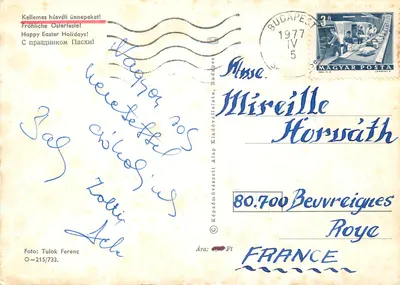 Kellemes húsvéti ünnepeket!
Fröhliche Osterfeste!
Happy Easter Holidays!
С праздником Пасхи!
BUDAPEST
1977
IV
5
3 Ft
MAGYAR POSTA
Nagyon sok
szeretettel
csókoljuk
Zoltán
Mme.
Mireille
Horváth
80.700 Beuvreignes
Roye
FRANCE
© Képzőművészeti Alap Kiadóvállalata, Budapest
Foto: Tulok Ferenc
O—215/733.
Ára: Ft